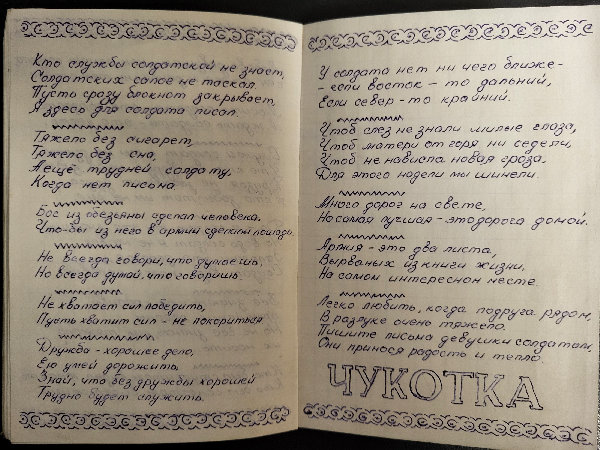 Кто службы солдатской не знает,
Солдатских сапог не таскал.
Пусть сразу блокнот закрывает,
Я здесь для солдата писал.
Тяжело без сигарет,
Тяжело без сна,
А ещё трудней солдату,
Когда нет письма.
Бог из обезьяны сделал человека.
Что-бы из него в армии сделали лошадь.
Не всегда говори, что думаешь,
Но всегда думай, что говоришь.
Не хватает сил победить,
Пусть хватит сил - не покориться.
Дружба - хорошее дело,
Ею умей дорожить.
Знай, что без дружбы хорошей
Трудно будет служить.
У солдата нет ни чего ближе-
- если восток - то дальний,
Если север - то крайний.
Чтоб слез не знали милые глаза,
Чтоб матери от горя ни седели,
Чтоб не нависла новая гроза.
Для этого надели мы шинели.
Много дорог на свете,
Но самая лучшая - это дорога домой.
Армия - это два листа,
Вырваных из книги жизни,
На самом интересном месте.
Легко любить, когда подруга рядом,
В разлуке очень тяжело.
Пишите письма девушки солдатам,
Они принося радость и тепло.
ЧУКОТКА